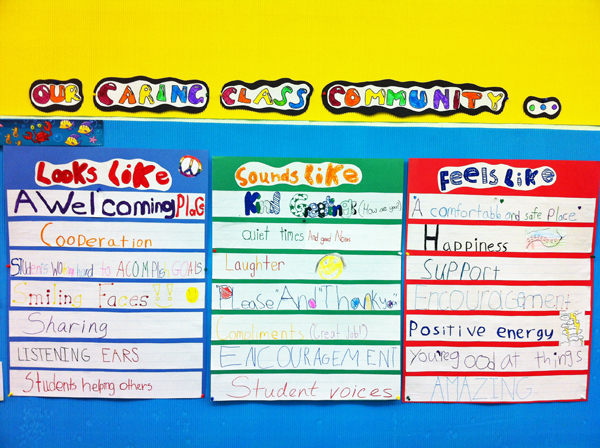 OUR CARING CLASS COMMUNITY
Looks Like
A Welcoming Place
Cooperation
Students working hard to ACOMPlish GOALS
Smiling Faces
Sharing
LISTENING EARS
Students helping others
Sounds Like
Kind Greetings (How are you?)
Quiet times And good Noises
Laughter
"Please" And "Thankyou"
Compliments (Great Job!)
ENCOURAGEMENT
Student voices
Feels Like
A comfortable and safe place
Happiness
SUPPORT
Encouragement
Positive energy
You're good at things
AMAZING